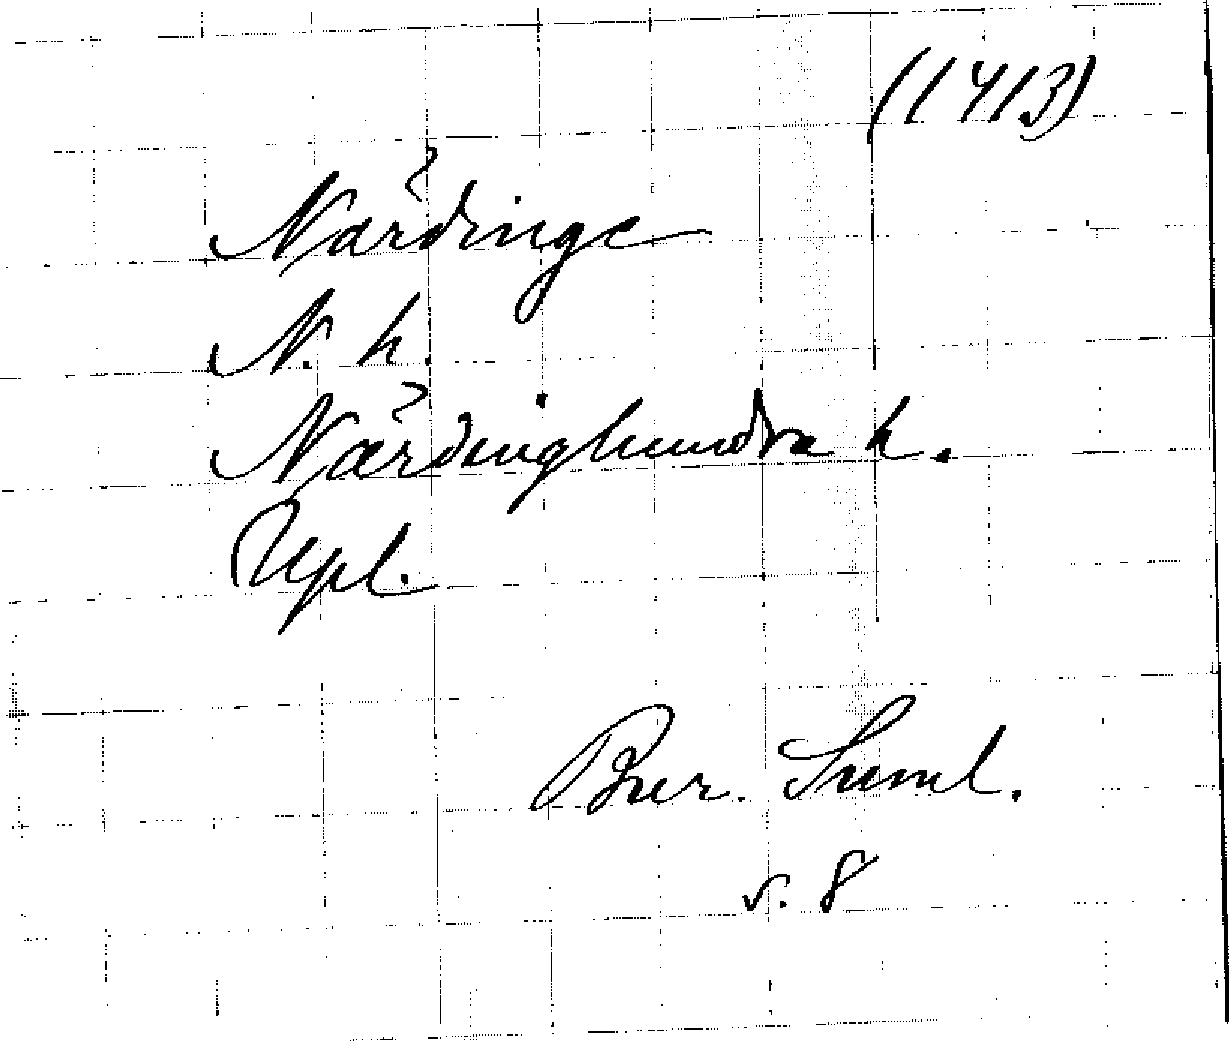 (1413)
Närdinge
N. h.
Närdinghundra h.
Upl.
Bur. Suml.
s. 8